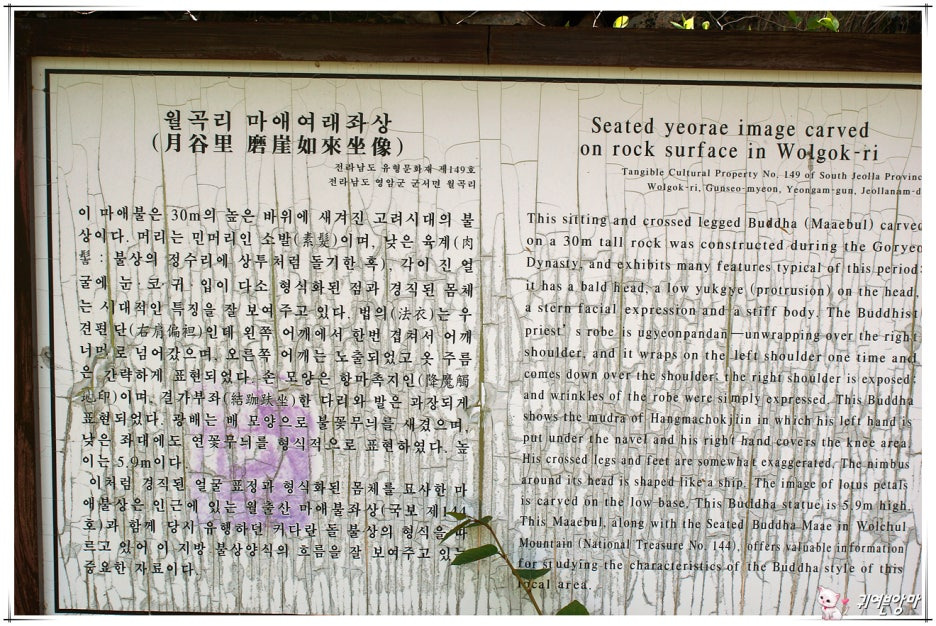 월곡리 마애여래좌상
(月谷里 磨崖如來坐像)
전라남도 유형문화재 제149호
전라남도 영암군 군서면 월곡리
이 마애불은 30m의 높은 바위에 새겨진 고려시대의 불
상이다. 머리는 민머리인 소발(素髮)이며, 낮은 육계(肉
髻 : 불상의 정수리에 상투처럼 돌기한 혹), 각이 진 얼
굴에 눈·코·귀·입이 다소 형식화된 점과 경직된 몸체
는 시대적인 특징을 잘 보여주고 있다. 법의(法衣)는 우
견편단(右肩偏袒)인데 왼쪽 어깨에서 한번 겹쳐서 어깨
너머로 넘어갔으며, 오른쪽 어깨는 노출되었고 옷 주름
은 간략하게 표현되었다. 손 모양은 항마촉지인(降魔觸
地印)이며, 결가부좌(結跏趺坐)한 다리와 발은 과장되게
표현되었다. 광배는 배 모양으로 불꽃무늬를 새겼으며,
낮은 좌대에도 연꽃무늬를 형식적으로 표현하였다. 높
이는 5.9m이다.
이처럼 경직된 얼굴 표정과 형식화된 몸체를 묘사한 마
애불상은 인근에 있는 월출산 마애불좌상(국보 제144
호)과 함께 당시 유행하던 커다란 돌 불상의 형식을 따
르고 있어 이 지방 불상양식의 흐름을 잘 보여주고 있는
중요한 자료이다.
Seated yeorae image carved
on rock surface in Wolgok-ri
Tangible Cultural Property No. 149 of South Jeolla Provinc
Wolgok-ri, Gunseo-myeon, Yeongam-gun, Jeollanam-d
This sitting and crossed legged Buddha (Maaebul) carved
on a 30m tall rock was constructed during the Goryeo
Dynasty, and exhibits many features typical of this period:
it has a bald head, a low yukgye (protrusion) on the head,
a stern facial expression and a stiff body. The Buddhist
priest's robe is ugyeonpandan—unwrapping over the right
shoulder, and it wraps on the left shoulder one time and
comes down over the shoulder; the right shoulder is exposed;
and wrinkles of the robe were simply expressed. This Buddha
shows the mudra of Hangmachokjiin in which his left hand is
put under the navel and his right hand covers the knee area.
His crossed legs and feet are somewhat exaggerated. The nimbus
around its head is shaped like a ship. The image of lotus petals
is carved on the low base. This Buddha statue is 5.9m high.
This Maaebul, along with the Seated Buddha Maae in Wolchul
Mountain (National Treasure No. 144), offers valuable information
for studying the characteristics of the Buddha style of this
local area.
귀연앙마